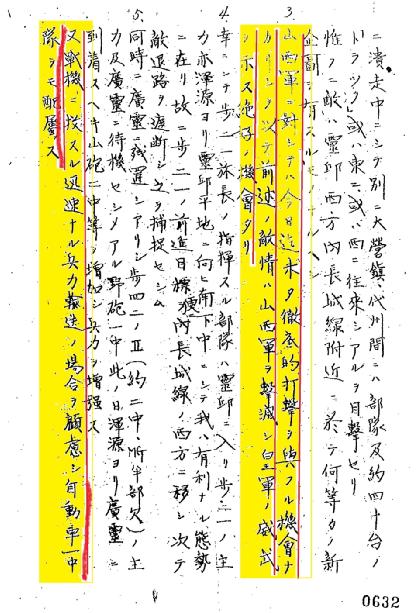 ニ潰走中ニシテ別ニ大營鎮、代州間ニハ部隊及約四十台ノ
トラック或ハ東ニ或ハ西ニ往来シアルヲ目撃セリ
惟フニ敵ハ靈邱西方内長城線附近ニ於テ何等カノ新
企圖ヲ有スルモノナルヘシ
3. 山西軍ニ對シテハ今日迄未タ徹底的打撃ヲ與フル機會ナ
カリシヲ以テ前述ノ敵情ハ山西軍ヲ撃滅シ皇軍ノ威武
ヲ示ス絶好ノ機會タリ
4. 幸ニシテ歩二一旅長ノ指揮スル部隊ハ靈邱ニ入リ歩二一ノ主
力亦渾源ヨリ靈邱平地ニ向ヒ南下中ニシテ我ハ有利ナル態勢
ニ在リ故ニ歩二一ノ前進目標ヲ内長城線ノ西方ニ移シ次テ
敵退路ヲ遮断シ之ヲ捕捉セシム
5. 同時ニ廣靈ニ残置シアリシ歩四二ノⅡ(約二中、㆒半部欠)ノ主
力及廣靈ニ待機セシメアル野砲一中此ノ日渾源ヨリ廣靈ニ
到着スヘキ山砲二中等ヲ増加シ兵力ヲ増强ス
又戦機ニ投スル迅速ナル兵力輸送ノ場合ヲ顧慮シ自動車一中
隊ヲモ配屬ス
0632